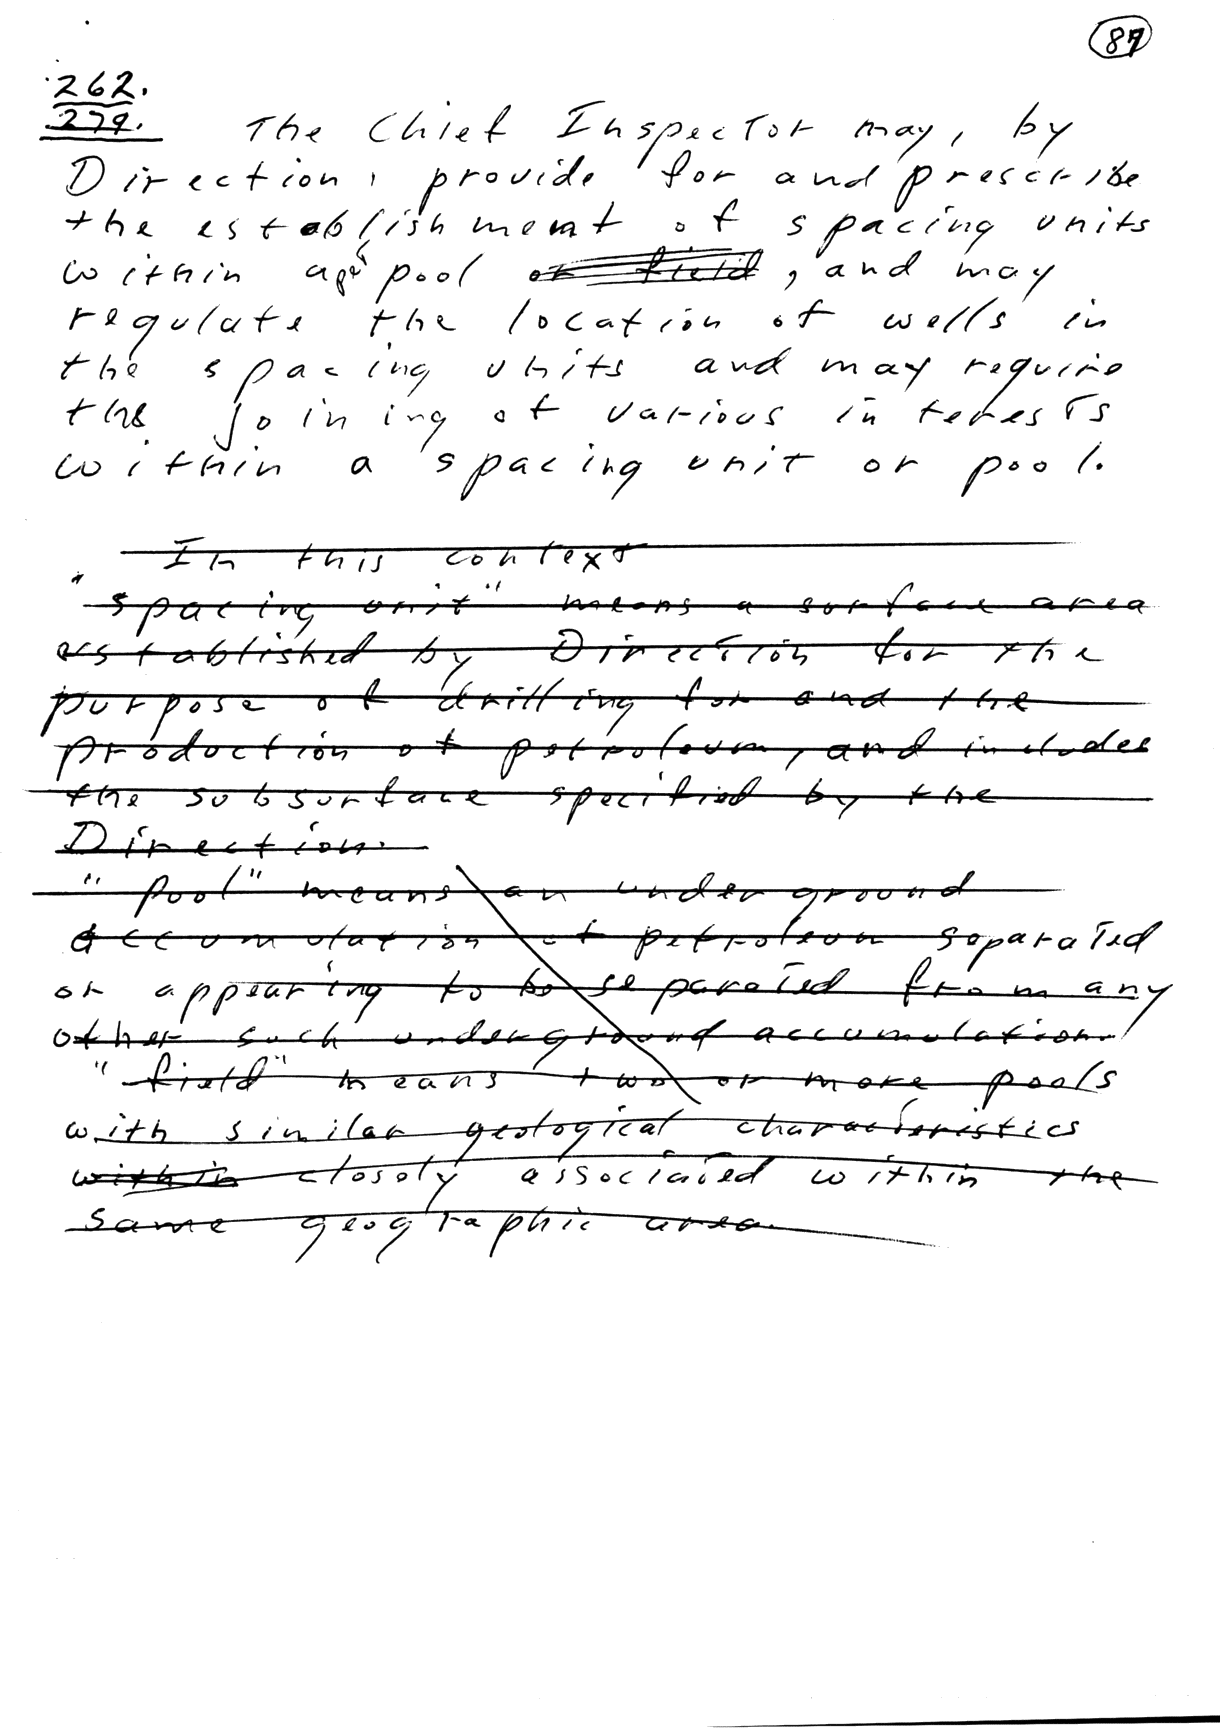 87
262.
279. The Chief Inspector may, by
Direction, provide for and prescribe
the establishment of spacing units
within a pool or field, and may
regulate the location of wells in
the spacing units and may require
the joining of various interests
within a spacing unit or pool.
In this context
"spacing unit" means a surface area
established by Direction for the
purpose of drilling for and the
production of petroleum, and includes
the subsurface specified by the
Direction.
"pool" means an underground
accumulation of petroleum separated
or appearing to be separated from any
other such underground accumulation.
"field" means two or more pools
with similar geological characteristics
within closely associated within the
same geographic area.